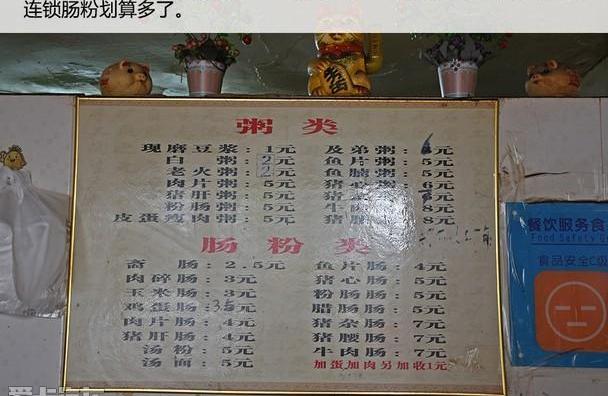 连锁肠粉划算多了。
粥类
现磨豆浆：1元
白粥：2元
老火粥：2元
肉片粥：5元
猪肝粥：5元
粉肠粥：5元
皮蛋瘦肉粥：5元
及弟粥：6元
鱼片粥：5元
鱼腩粥：5元
猪心粥：6元
猪
牛肉
8元
猪
8元
肠粉类
斋肠：2.5元
肉碎肠：3元
玉米肠：3元
鸡蛋肠：3.5元
肉片肠：4元
猪肝肠：4元
汤粉：5元
汤面：5元
鱼片肠：4元
猪心肠：5元
粉肠肠：5元
腊肠肠：5元
猪杂肠：7元
猪腰肠：7元
牛肉肠：7元
加蛋加肉另加收1元
餐饮服务食
Food Safety G
食品安全C级